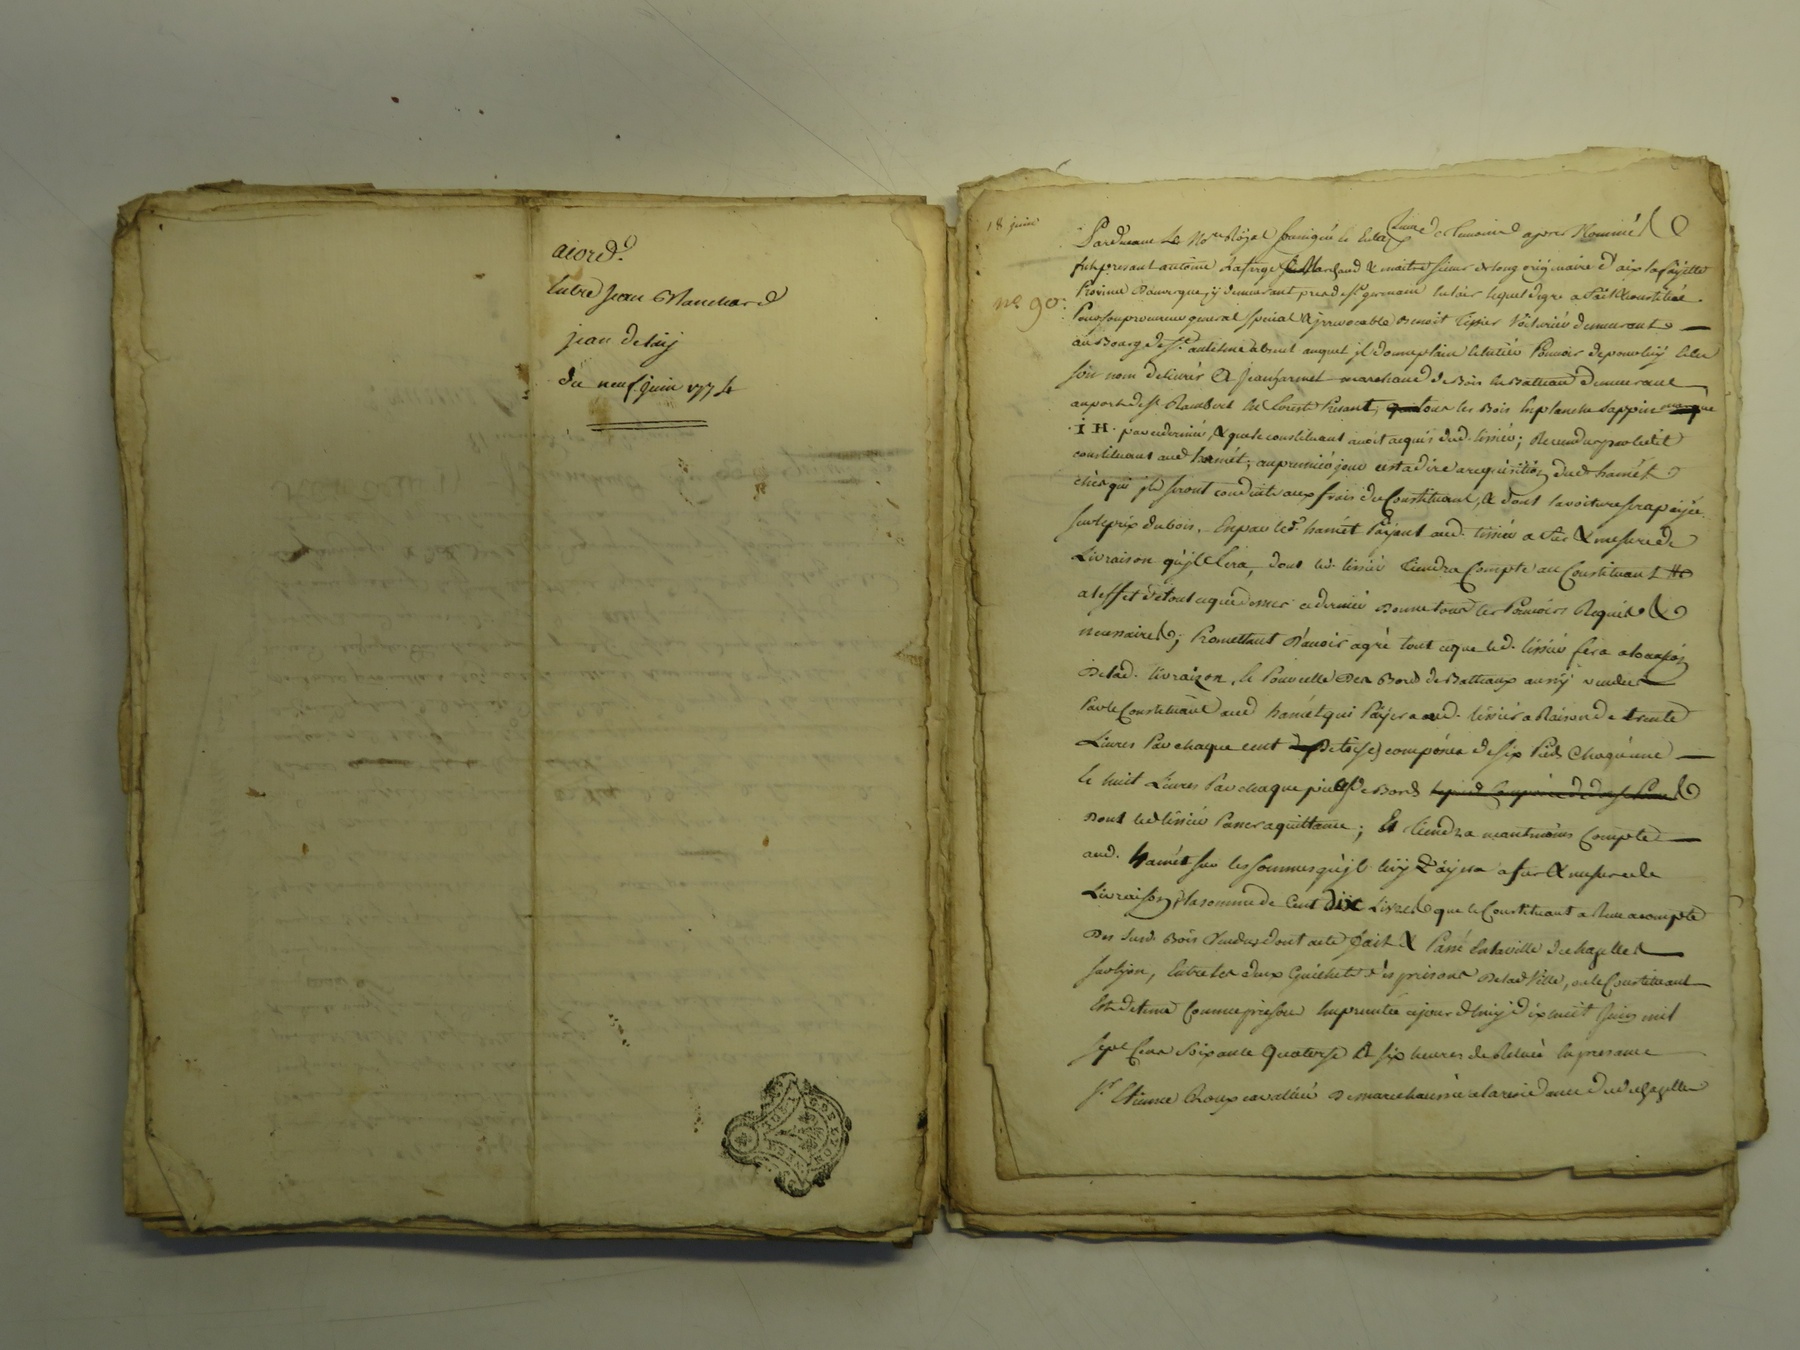 acord
Entre Jean Blanchard
jean
du neuf juin 1774
18 juin
nº 90
Pardevant Le Nore Royal soussigné Et temoins apres Nommés
fut present antoine Laforge Marchand & maitre sieur de long originaire d'aix la fayette
Province Dauvergne, y demeurant, pres de St germain lequel de gre a fait & constitué
Pour son procureur general special & irrevocable Benoit tissier Voiturier demeurant
au Bourg de St anthême absent auquel il donne plain & entier Pouvoir de pour luy & en
son nom delivrer A Jean hamet marchand de Bois & Batteau demeurant
au port de St Rambert en forest Present, tous les Bois en planche sappin marque
I H par ce dernier, & que le constituant avoit acquis dud. tissier; Revendus par ledit
constituant aud hamet; au premier jour cest a dire a requisition dud hamet
chés qui ils seront conduits aux frais du Constituant, & dont la voiture sera payée
sur le prix du bois. En par led. hamet Payant aud. tissier a fur & mesure de
Livraison qu'il fera, dont led. tissier tiendra Compte au Constituant
a l'effet de tout ce que dessus ce dernier Donne tous les Pouvoirs Requis &
necessaires; Promettant D'avoir agré tout ce que led. tissier fera
De lad. livraison, & Pour celle Des Bords de Batteaux aussy vendus
Par le Constituant aud hamet qui Payera aud. tissier a Raison de trente
Livres Par chaque cent De toises composées de six Pieds Chaqu'une
& huit Livres Par chaque piesse de Bords
Dont led tissier Passera quittance; Et tiendra neantmoins Compte
aud. hamet sur les sommes qu'il luy Payera a fur & mesure de
Livraison, la somme de Cent dix Livres que le Constituant a Reçu acompte
Des susd. Bois Vendus dont acte fait & Passé En la ville de chazelles
sur lyon, Entre les deux Guichets des prisons De lad Ville, ou le Constituant
Est detenu Comme prisonier ce jour d'huy dixhuit Juin mil
sept Cens Soixante Quatorse A six heures de Relevée En presence
Sr. Etienne Roux cavallier De marechaussée a la residence dud chazelles